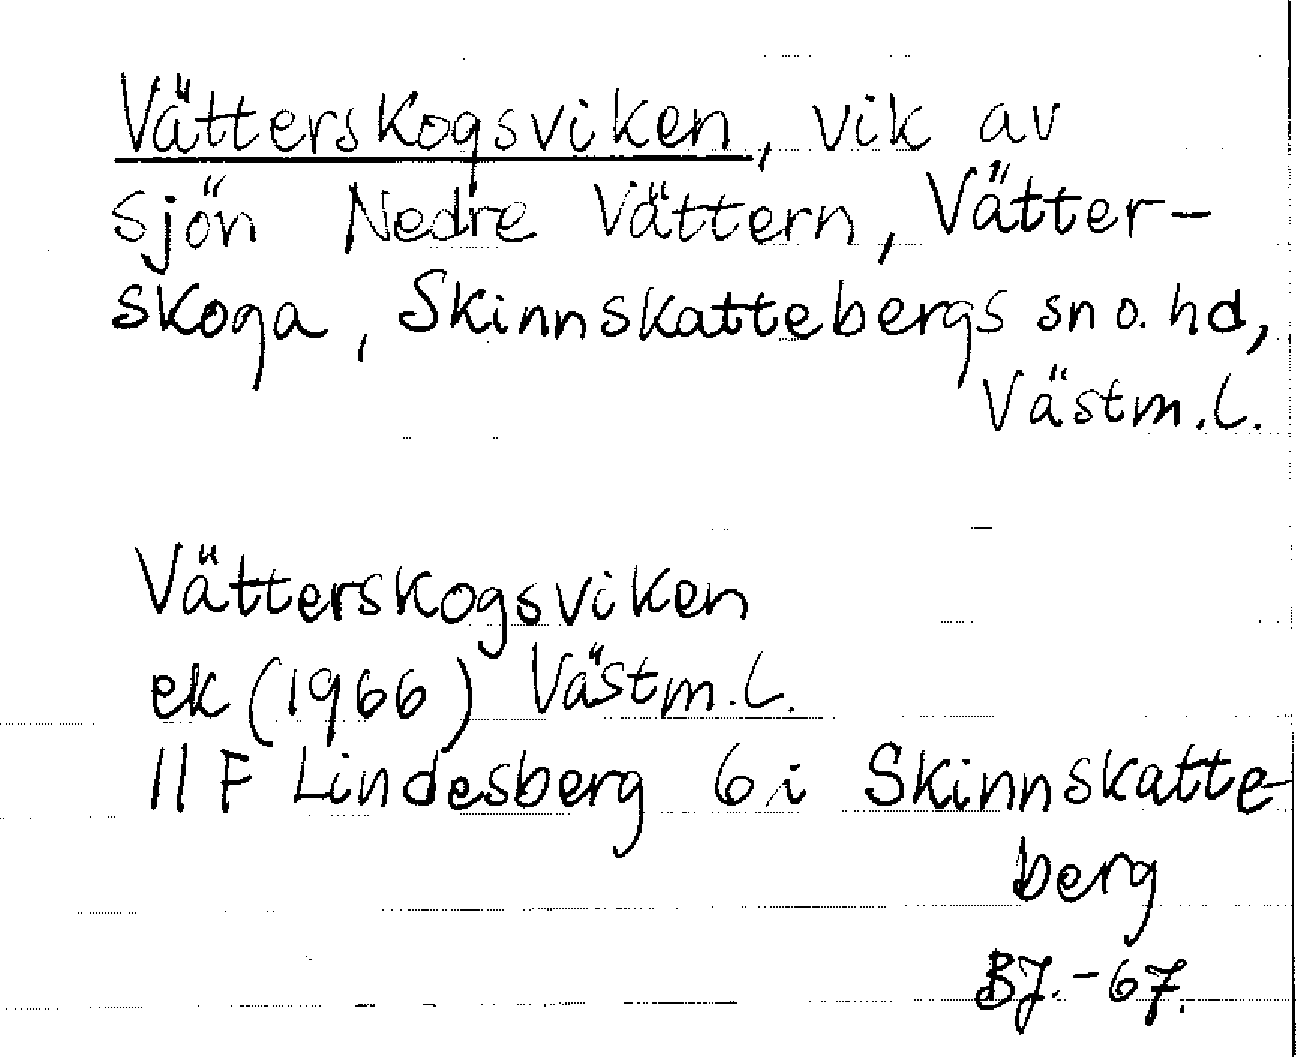 Vätterskogsviken, vik av
sjön Nedre Vättern, Vätter-
skoga, Skinnskattebergs sn o. hd,
Västm. l.
Vätterskogsviken
ek (1966) Västm. l.
11 F Lindesberg 6 i Skinnskatte-
berg
BJ. -67.